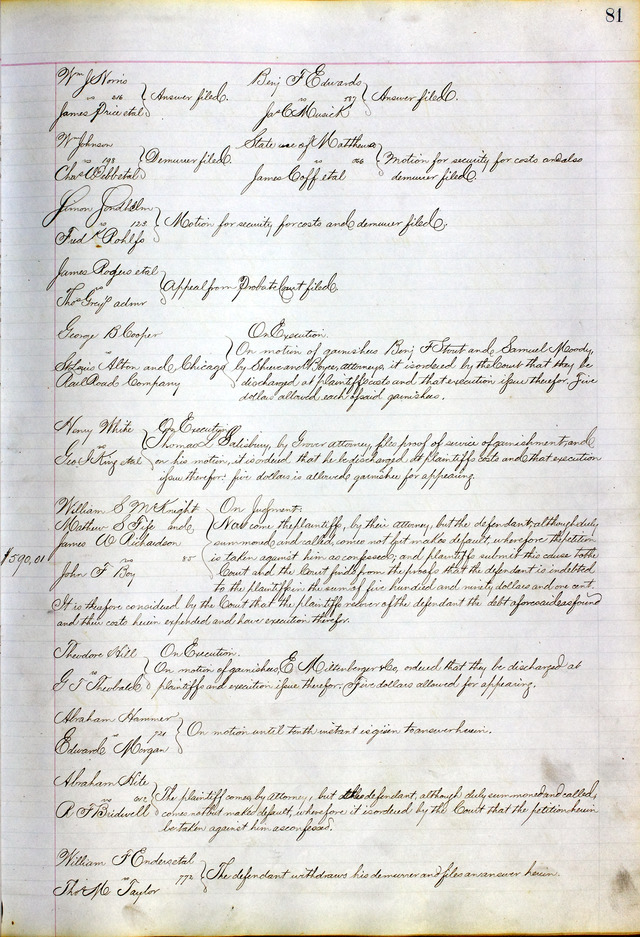 81
Wm J Norris
vs 216 Answer filed.
James Price etal
Benj F Edwards
vs 787 Answer filed.
Jas C Musick
W Johnson
vs 198 Demurrer filed.
Chas A
State use of Matthews
vs 266 Motion for security for costs and also
James Goff etal demurrer filed.
Simon Sondheim
vs 123 Motion for security for costs and demurrer filed.
Fred K Pohlfs
James Rogers etal
vs Appeal from Probate Court filed.
Thos Grey admr
George B Cooper On Execution.
vs On motion of garnishees Benj F Stout and Samuel Moody,
St Louis Alton and Chicago by attorneys, it is ordered by the Court that they be
Rail Road Company discharged at plaintiffs costs and that execution issue therefor. Five
dollars allowed each of said garnishees.
Henry White On Execution
vs Thomas L Salisbury, by Grover attorney, files proof of service of garnishment, and
Geo J King etal on his motion, it is ordered that he be discharged at plaintiffs costs and that execution
issue therefor: five dollars is allowed garnishee for appearing.
William S McKnight On Judgment.
Mathew S Fife and Now come the plaintiff, by their attorney, but the defendant, although duly
James W Richardson summoned and called, comes not but makes default, wherefore the petition
$590,01 vs 85 is taken against him as confessed; and plaintiffs submit this cause to the
John F Boy Court and the Court finds from the proofs that the defendant is indebted
to the plaintiffs in the sum of five hundred and ninety dollars and one cent.
It is therefore considered by the Court that the plaintiffs recover of the defendant the debt aforesaid as found
and their costs herein expended and have execution therefor.
Theodore Hill On Execution.
vs On motion of garnishees, E Miltenberger & Co, ordered that they be discharged at
G T Theobald plaintiffs and execution issue therefor. Five dollars allowed for appearing.
Abraham Hammer
vs 721 On motion until tenth instant is given to answer herein.
Edward Morgan
Abraham Hite
vs 602 The plaintiff comes by attorney, but the defendant, although duly summoned and called,
R F Bridwell comes not but makes default, wherefore it is ordered by the Court that the petition herein
be taken against him as confessed.
William F Enders etal
vs 772 The defendant withdraws his demurrer and files an answer herein.
Thos M Taylor